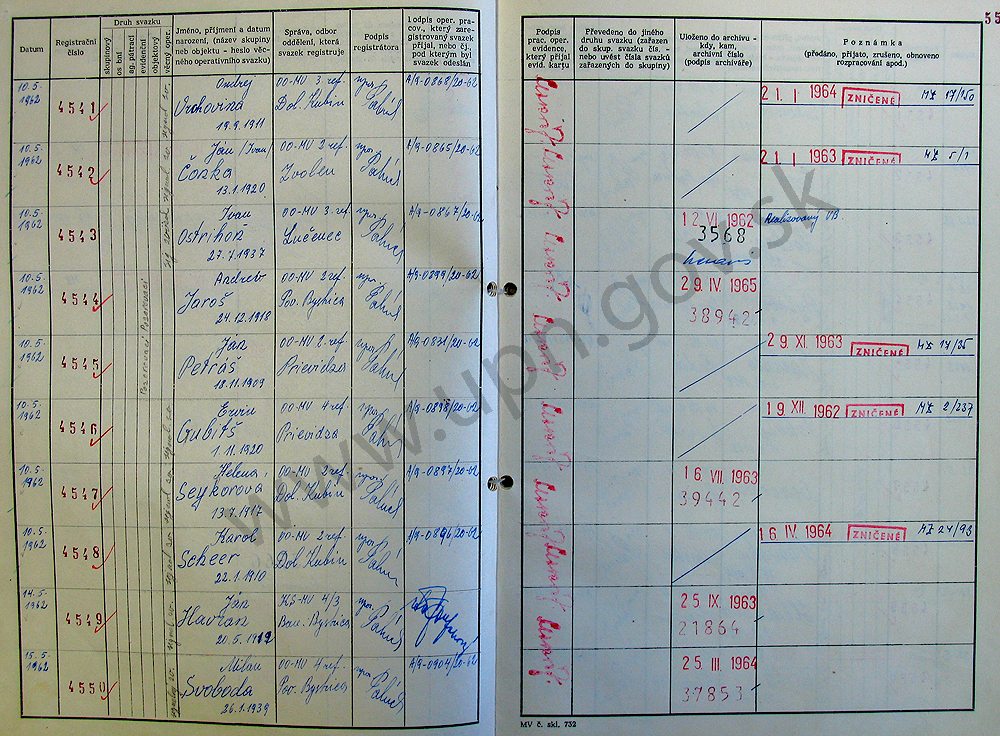 55
Datum
Registrační číslo
Druh svazku
skupinový
os bní
ag. pátrací
evidenční
objektový
věcný oper.
Jméno, příjmení a datum narození, (název skupiny neb objektu - heslo věcného operativního svazku)
Správa, odbor oddělení, která svazek registruje
Podpis registrátora
Podpis oper. pracov., který zaregistrovaný svazek přijal, nebo čj., pod kterým byl svazek odeslán
Podpis prac. oper. evidence, který přijal evid. kartu
Převedeno do jiného druhu svazku (zařazen do skup. svazku čís. - nebo uvést čísla svazků zařazených do skupiny)
Uloženo do archivu - kdy, kam, archivní číslo (podpis archiváře)
Poznámka
(předáno, přijato, zrušeno, obnoveno rozpracování apod.)
10.5. 1962
4541
Ondrej
Vrchovina
19.9.1911
OO-MV 3 ref.
Dol. Kubín
A/9-0868/20-62
21. I 1964 ZNIČENÉ MZ 17/150
10.5. 1962
4542
Ján /Ivan/
13.1.1920
OO-MV 2 ref.
Zvolen
A/9-0865/20-62
21. I 1963 ZNIČENÉ MZ 5/1
10.5. 1962
4543
Ivan
Ostrihoň
27.7.1937
OO-MV 3. ref.
Lučenec
A/9-0867/20-62
12. VI 1962
3568
Realizovaný VB.
10.5. 1962
4544
Andrej
Jaroš
24.12.1918
OO-MV 2 ref.
Pov. Bystrica
A/9-0899/20-62
29. IV 1965
38942
10.5. 1962
4545
Ján
Petráš
18.11.1909
OO-MV 2. ref.
Prievidza
A/9-0831/20-62
29. XI. 1963 ZNIČENÉ MZ 17/25
10.5. 1962
4546
Ervin
Gubiš
1.11.1920
OO-MV 4 ref.
Prievidza
A/9-0898/20-62
19. XII. 1962 ZNIČENÉ MZ 2/237
10.5. 1962
4547
Helena,
Seykorova
13.7.1917
OO-MV 2 ref.
Dol. Kubín
A/9-0897/20-62
16. VII. 1963
39442
10.5. 1962
4548
Karol
Scheer
22.1.1910
OO-MV 2 ref.
Dol. Kubín
A/9-0896/20-62
16. IV. 1964 ZNIČENÉ MZ 24/93
14.5. 1962
4549
Ján
Havran
20.5.1912
KS-MV 4/3
Ban. Bystrica
25. IX. 1963
21864
15.5. 1962
4550
Milan
Svoboda
26.1.1939
OO-MV 4 ref.
Pov. Bystrica
A/9-0904/20-62
25. III. 1964
37853
MV č. skl. 732
www.upn.gov.sk